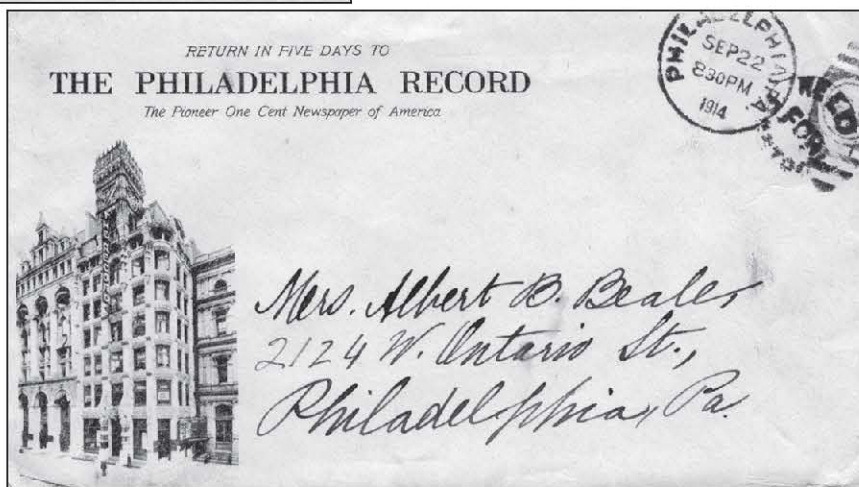 RETURN IN FIVE DAYS TO
THE PHILADELPHIA RECORD
The Pioneer One Cent Newspaper of America
PHILADELPHIA, PA
SEP 22
830 PM
1914
FOR
Mrs. Albert B. Beales
2124 W. Ontario St.,
Philadelphia, Pa.